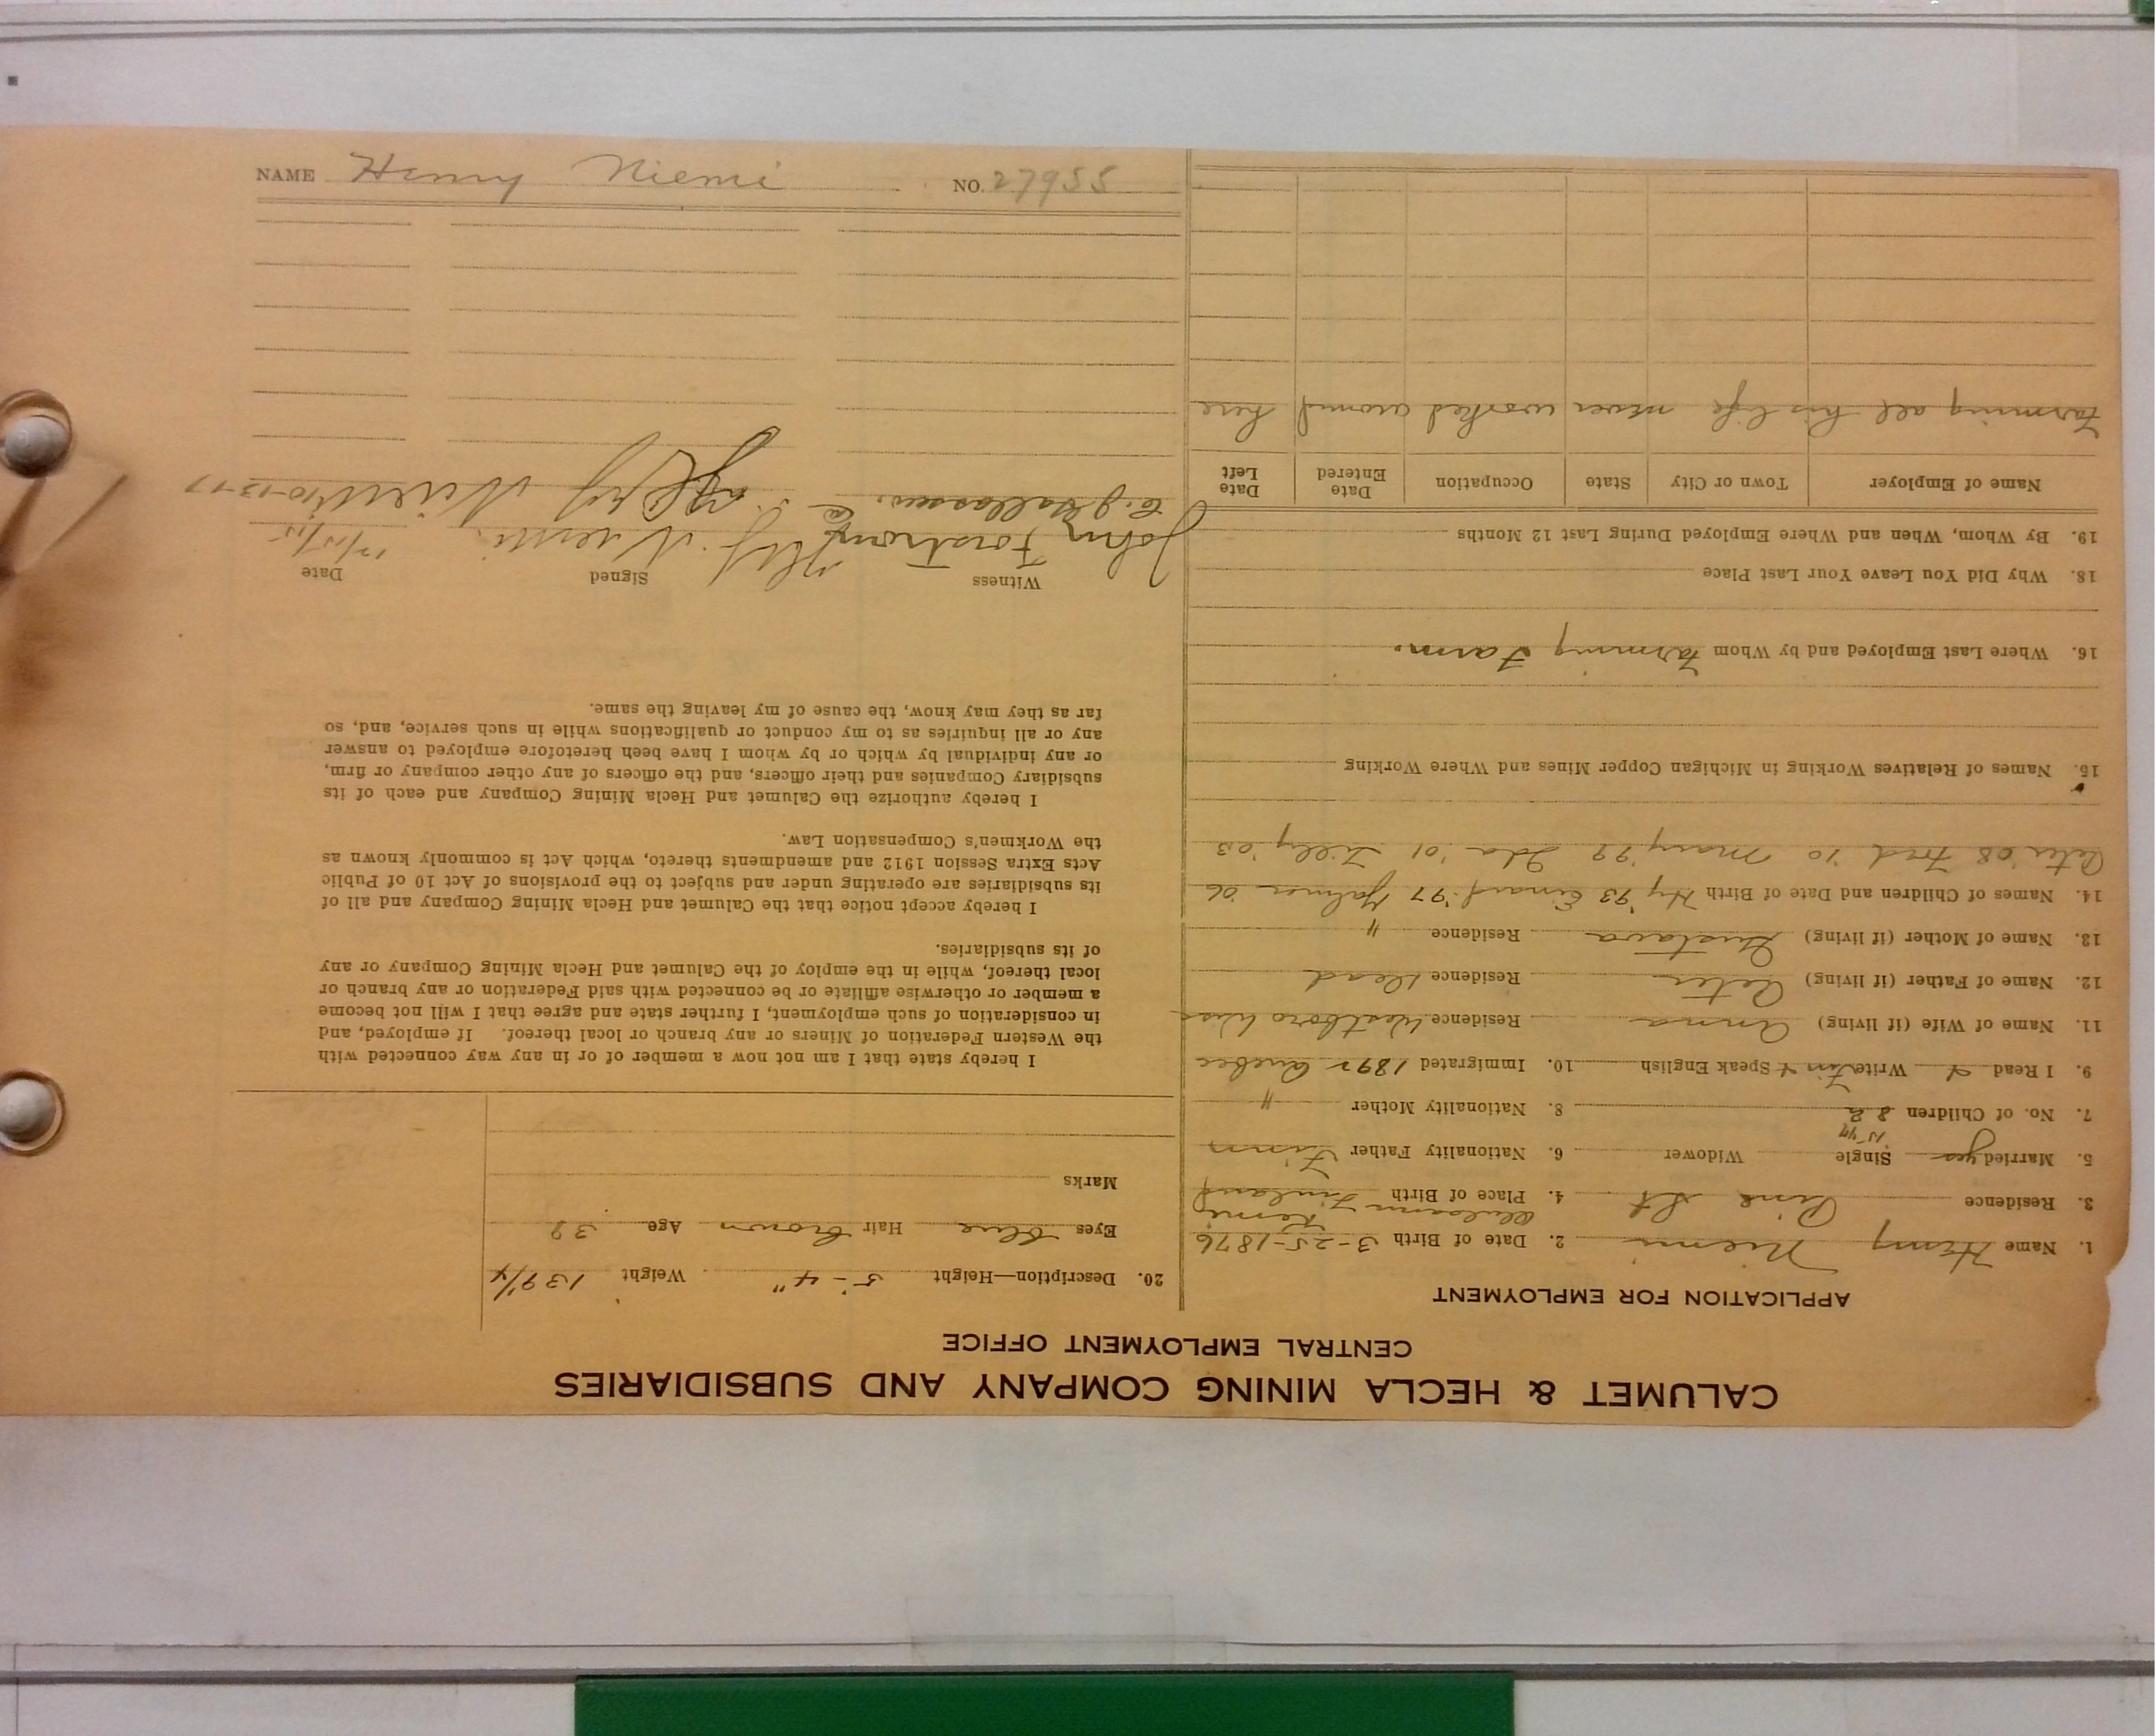 CALUMET & HECLA MINING COMPANY AND SUBSIDIARIES
CENTRAL EMPLOYMENT OFFICE
APPLICATION FOR EMPLOYMENT
1. Name Henry Niemi 2. Date of Birth 3-25-1876
Kemi
3. Residence Pine St 4. Place of Birth Finland
5. Married yes Single Widower 6. Nationality Father Finn
7. No. of Children 8 8. Nationality Mother "
9. I Read & Write Finn & Speak English 10. Immigrated 1892 Quebec
11. Name of Wife (if living) Anna Residence Westboro Wis
12. Name of Father (if living) Peter Residence Dead
13. Name of Mother (if living) Gustava Residence "
14. Names of Children and Date of Birth Hy '93 Einard '97 Hjalmer '06
Peter '08 Fred '10 Mary '99 Ida '01 Lilly '03
15. Names of Relatives Working in Michigan Copper Mines and Where Working
16. Where Last Employed and by Whom Farming Farm.
18. Why Did You Leave Your Last Place
19. By Whom, When and Where Employed During Last 12 Months
Name of Employer Town or City State Occupation Date Entered Date Left
Farming all his life never worked around here
20. Description—Height 5'-4" Weight 139 1/4
Eyes blue Hair brown Age 39
Marks
I hereby state that I am not now a member of or in any way connected with
the Western Federation of Miners or any branch or local thereof. If employed, and
in consideration of such employment, I further state and agree that I will not become
a member or otherwise affiliate or be connected with said Federation or any branch or
local thereof, while in the employ of the Calumet and Hecla Mining Company or any
of its subsidiaries.
I hereby accept notice that the Calumet and Hecla Mining Company and all of
its subsidiaries are operating under and subject to the provisions of Act 10 of Public
Acts Extra Session 1912 and amendments thereto, which Act is commonly known as
the Workmen's Compensation Law.
I hereby authorize the Calumet and Hecla Mining Company and each of its
subsidiary Companies and their officers, and the officers of any other company or firm,
or any individual by which or by whom I have been heretofore employed to answer
any or all inquiries as to my conduct or qualifications while in such service, and, so
far as they may know, the cause of my leaving the same.
Witness Signed Date
John Forstrom Niemi
10-13-17
NAME Henry Niemi NO. 27955